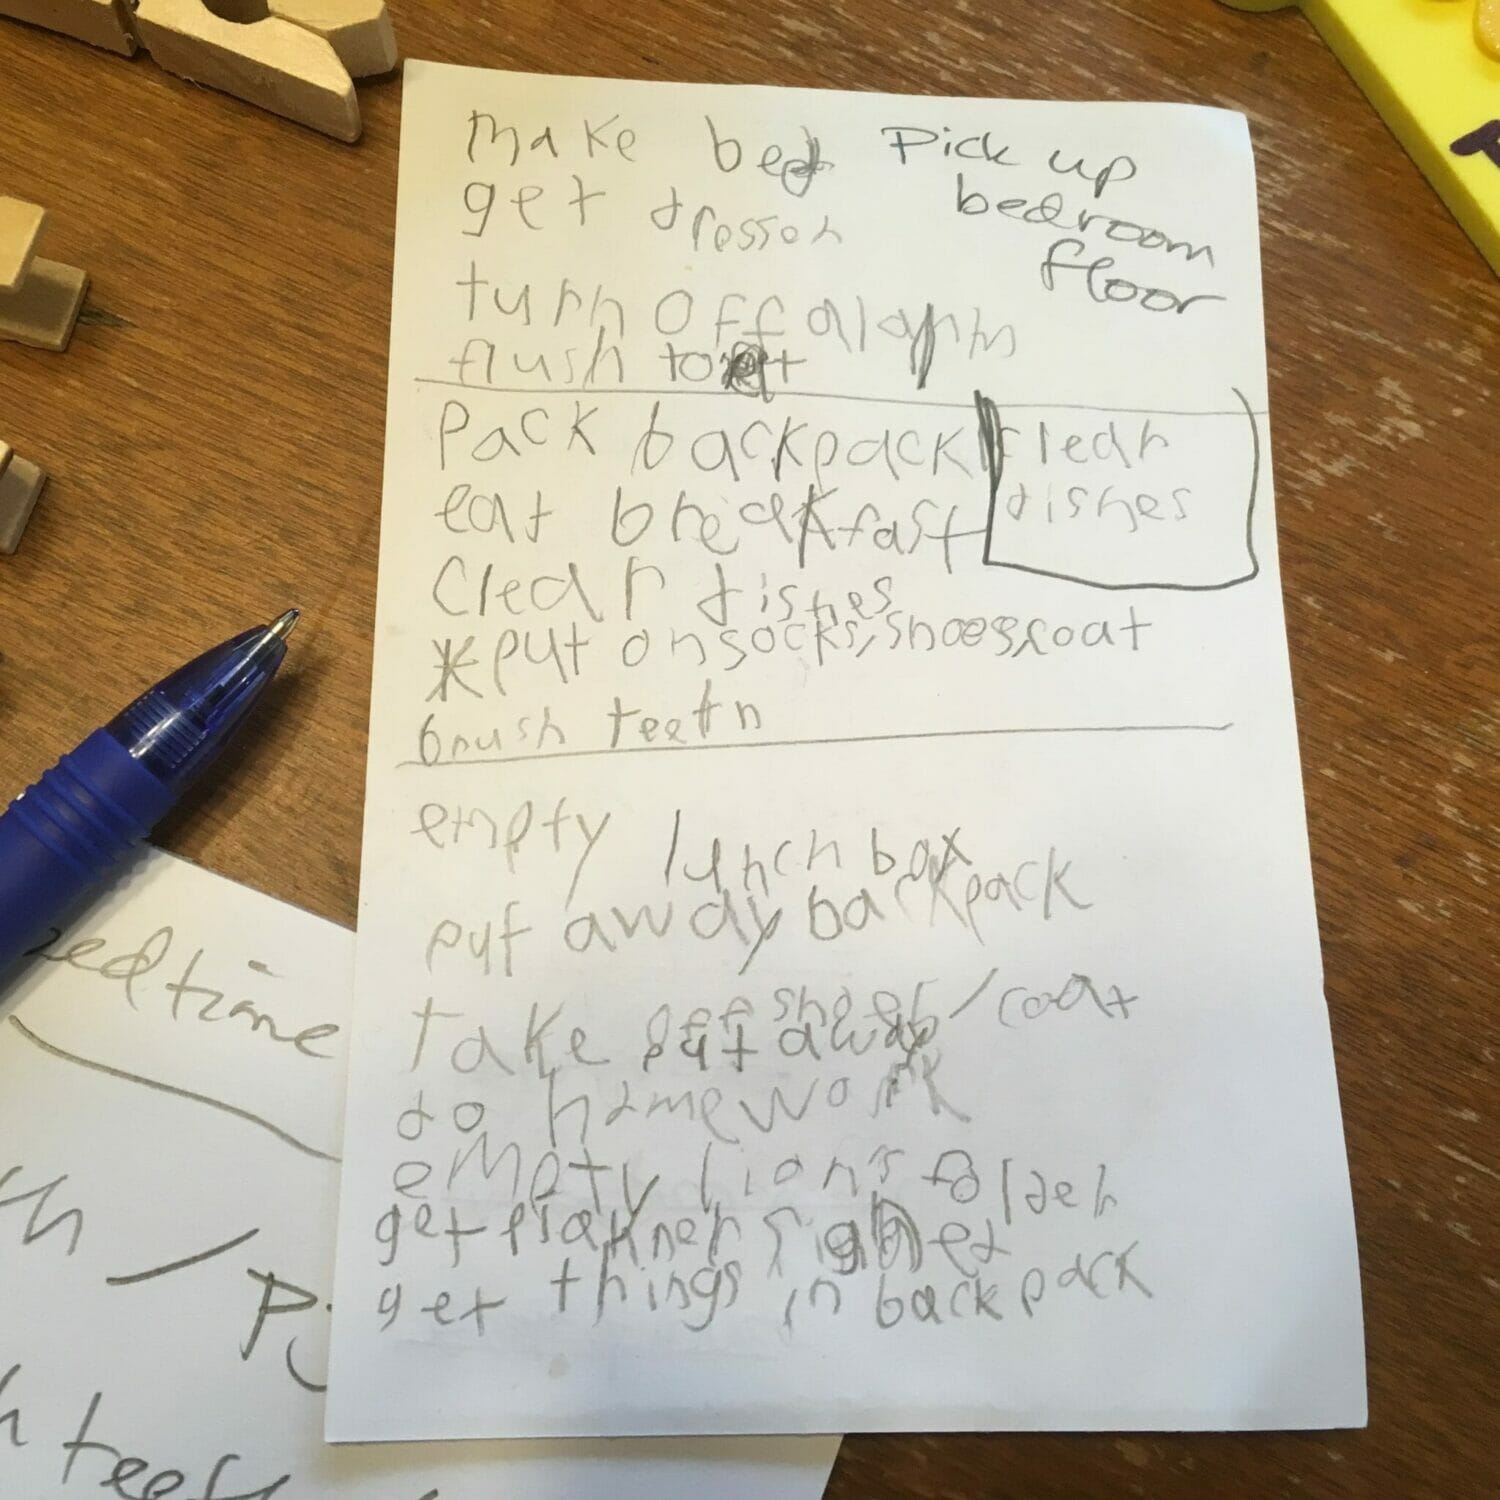 make bed
get dressen
turn off alarm
flush
Pick up
bedroom
floor
Pack backpack
eat breakfast
Clear dishes
clear
dishes
*put on socks, shoes, coat
brush teeth
empty lunch box
put away backpack
take off shoes/coat
put away
do homework
empty lions folder
get planner signed
get things in backpack
bedtime
teeth